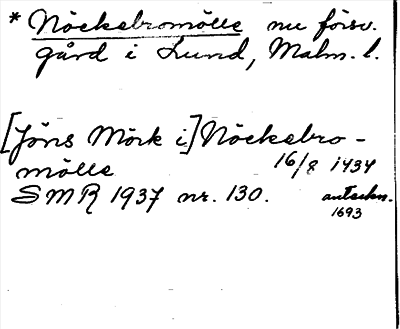 * Nöckebromölle nu försv.
gård i Lund, Malm. l.
[Jöns Mörk i] Nöckebro-
mölle 16/8 1434
SMR 1937 nr. 130. anteckn.
1693